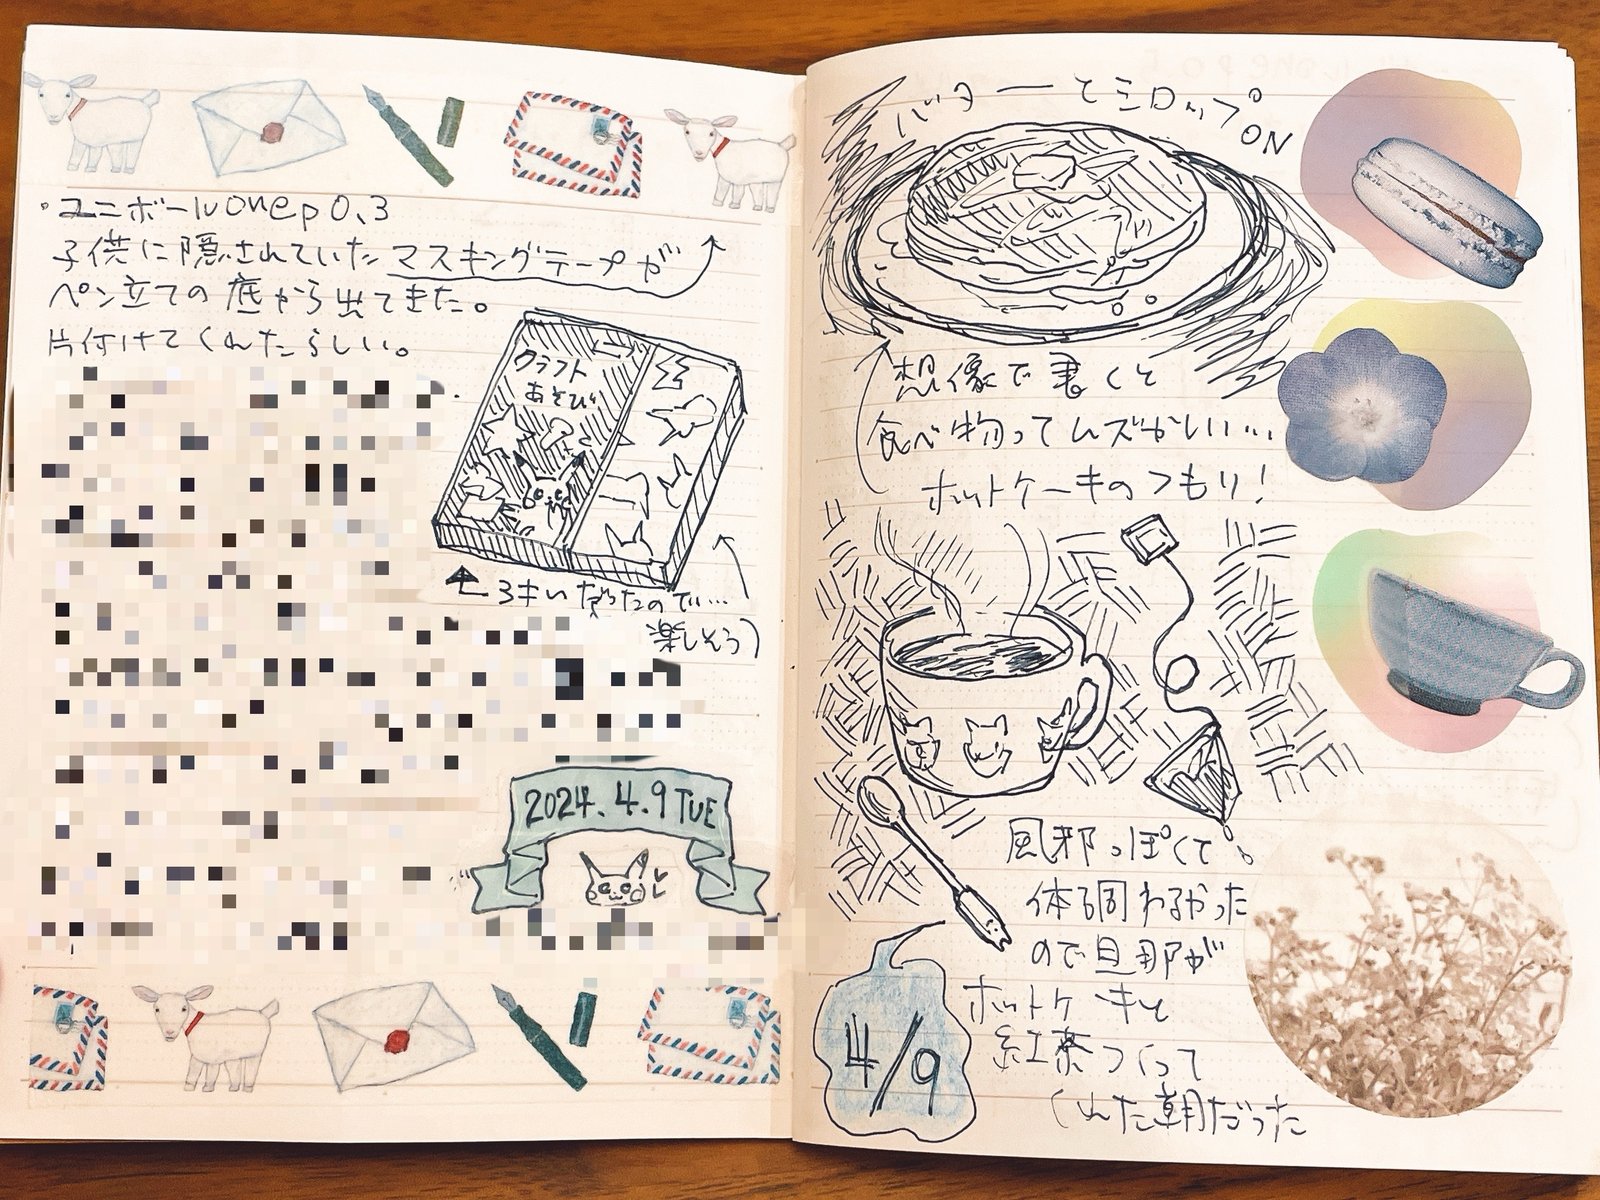 ・ユニボールone P 0.3
子供に隠されていたマスキングテープが
ペン立ての底から出てきた。
片付けてくれたらしい。
クラフト
あそび
3キいだったので…
楽しそう)
2024.4.9 TUE
バターとシロップ
ON
想像で書くと
食べ物ってムズかしい…
ホットケーキのつもり!
風邪っぽくて。
体調わるかった
ので旦那が
ホットケーキと
紅茶つくって
くれた朝だった
4/9